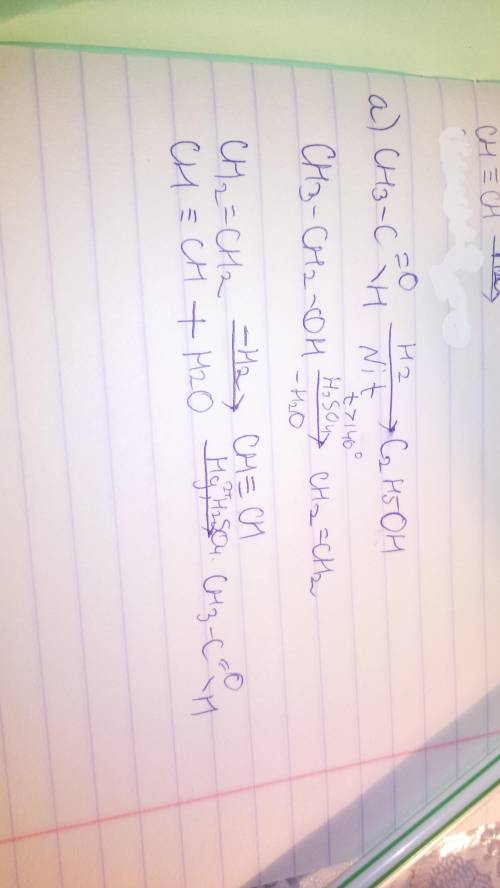 CH ≡ CH
а) CH3-C =O -H H2 Ni t C2H5OH
CH3-CH2-OH t>140° H2SO4 -H2O CH2=CH2
CH2=CH2 -H2 CH≡CH
CH≡CH + H2O Hg2+, H2SO4 CH3-C =O -H